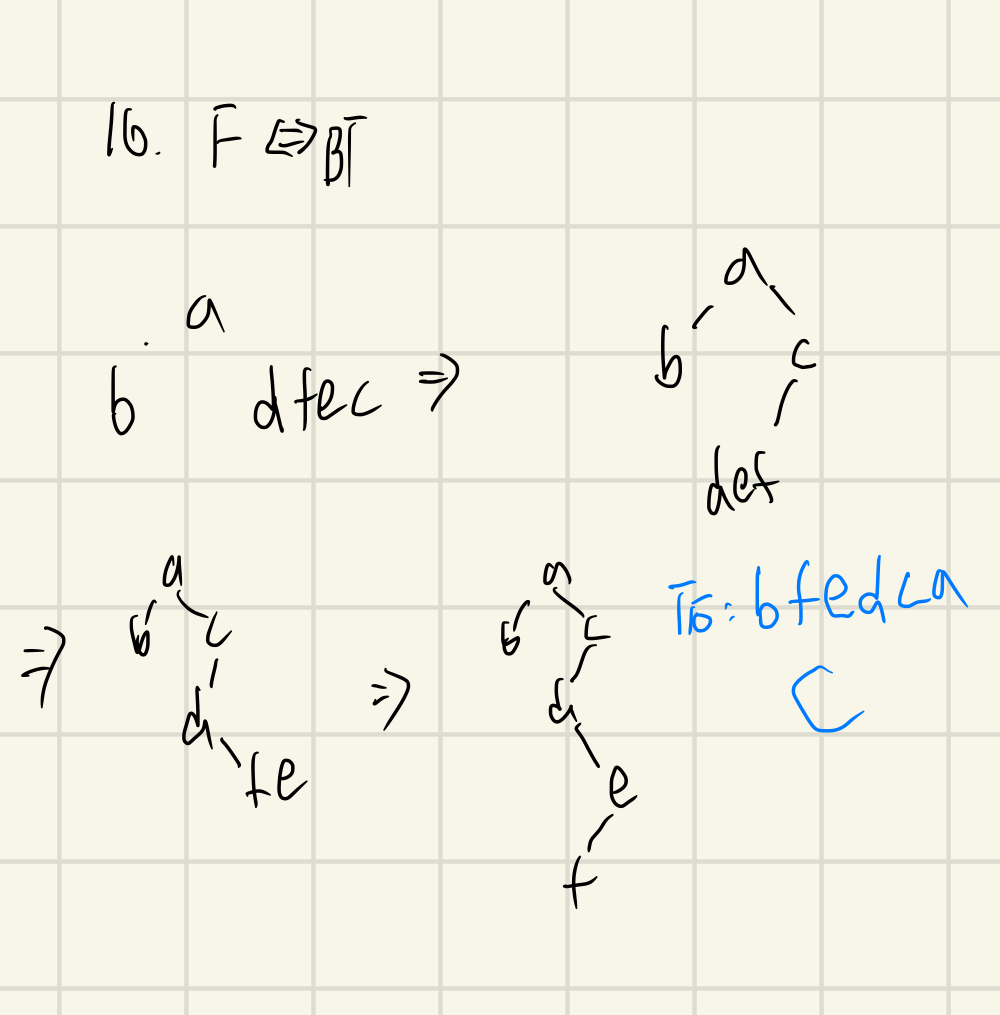 16. F ⇔ BT
a
b dfec ⇒
a
b c
def
⇒
a
b c
d
fe
⇒
a
b c
d
e
f
后: bfedca
C